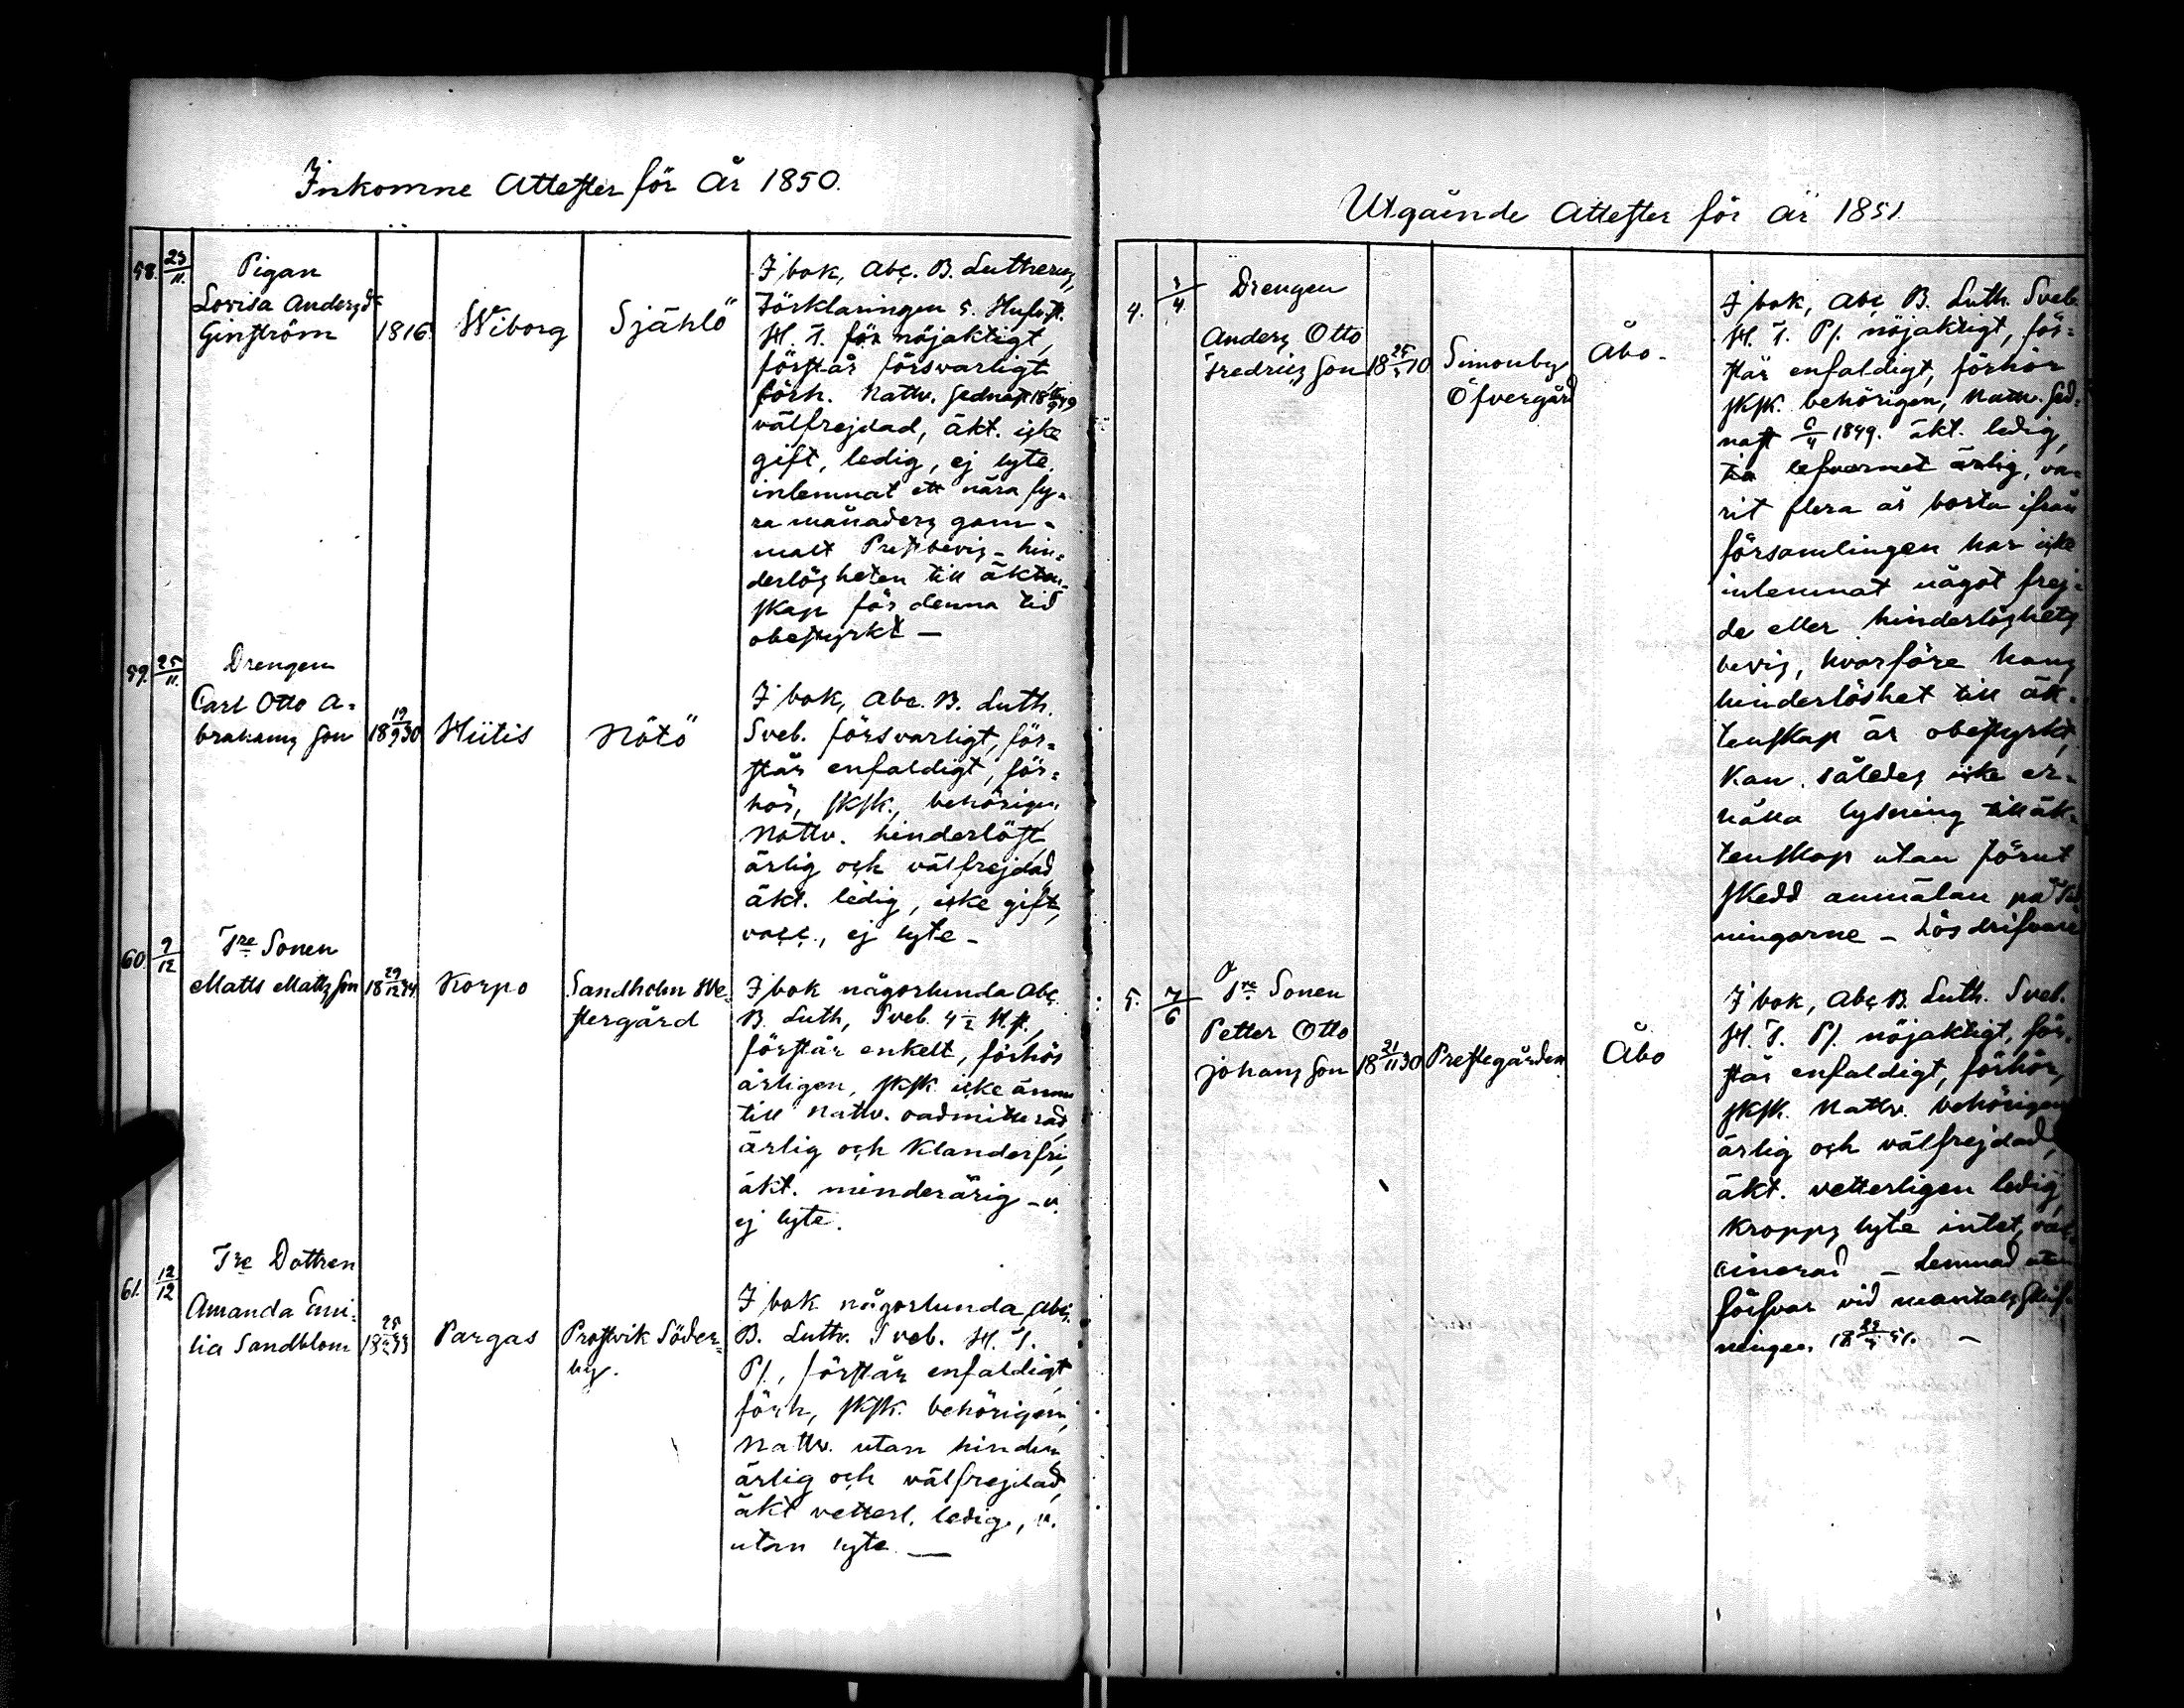 Inkomne Attester för År 1850.
58. 23/11.
Pigan
Lovisa Andersd:
Ginström
1816.
Wiborg
Själö
I bok, Abc. B. Lutheruz,
Förklaringen 5. Husst.
H. T. för nöjaktigt,
förstår försvarligt
förh. Nattv. sednast
välfrejdad, äkt. icke
gift, ledig, ej lyte,
inlemnat ett nära fy-
ra månaders gam-
malt Prestbevis - hin-
derlösheten till äkten-
skap för denna tid
obestyrkt —
59. 25/11.
Drengen
Carl Otto A-
brahams son
18 19/9 30
Hiitis
Nötö
I bok, Abc. B. Luth.
Sveb. försvarligt, för-
står enfaldigt, för-
hör, sksk., behörigen
Nattv. hinderlöst
ärlig och välfrejdad
äkt. ledig, icke gift,
vacc., ej lyte -
60. 9/12
Tre Sonen
Matts Matts son
18 29/12 34.
Korpo
Sandholm We-
stergård
I bok någorlunda Abc.
B. Luth, Sveb. 4 1/2 H.st.,
förstår enkelt, förhör
årligen, sksk. icke ännu
till Nattv. oadmitterad,
ärlig och klanderfri,
äkt. minderårig - v.
ej lyte.
61. 12/12
Tre Dottren
Amanda Emi-
lia Sandblom
Pargas
Prostvik Söder-
by.
I bok någorlunda Abc.
B. Luth. Sveb. H. T.
Ps., förstår enfaldigt,
förh, sksk. behörigen,
Nattv. utan hinder,
ärlig och välfrejdad,
äkt vetterl. ledig, v.
utan lyte —
Utgående Attester för år 1851
4. 3/4
Drengen
Anders Otto
Fredrics son
Simonby
Öfvergård
Åbo -
I bok, Abc B. Luth. Sveb.
H. T. Ps. nöjaktigt, för-
står enfaldigt, förhör
sksk. behörigen, Nattv. sed-
nast 6/4 1849. äkt. ledig,
till lefvernet ärlig, va-
rit flera år borta ifrån
församlingen har icke
inlemnat något frej-
de eller hinderlöshets
bevis, hvarföre hans
hinderlöshet till äk-
tenskap är obestyrkt,
kan således icke er-
hålla lysning till äk-
tenskap utan förut
skedd anmälan
ningarne - Lösdrifvare
5. 7/6
Tre Sonen
Petter Otto
Johans son
18 21/11 30
Prestegården
Åbo
I bok, Abc B. Luth. Sveb.
H. T. Ps. nöjaktigt, för-
står enfaldigt, förhör,
sksk. Nattv. behörigen
ärlig och välfrejdad,
äkt. vetterligen ledig,
kropps lyte intet, vac-
cinerad - Lemnad utan
försvar vid mantals skrif-
ningen —